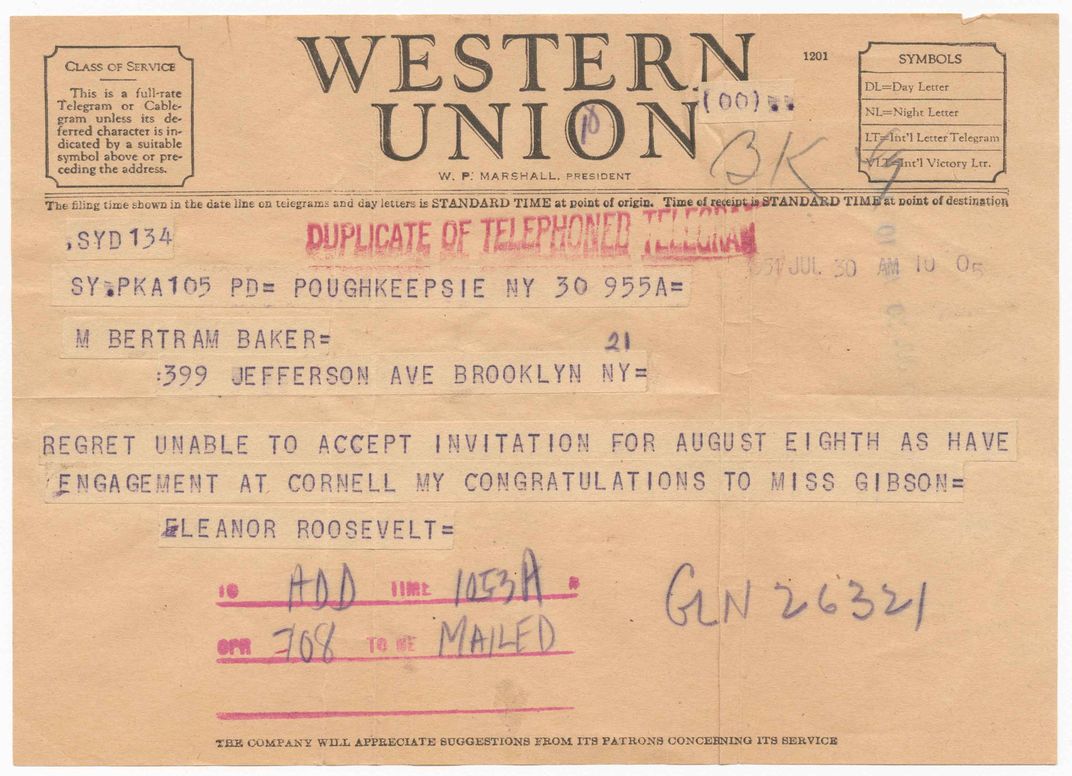 CLASS OF SERVICE
This is a full-rate
Telegram or Cable-
gram unless its de-
ferred character is in-
dicated by a suitable
symbol above or pre-
ceding the address.
WESTERN
UNION
1201
(00)
W. P. MARSHALL, PRESIDENT
SYMBOLS
DL=Day Letter
NL=Night Letter
LT=Int'l Letter Telegram
VLT=Int'l Victory Ltr.
BK
The filing time shown in the date line on telegrams and day letters is STANDARD TIME at point of origin. Time of receipt is STANDARD TIME at point of destination
SYD134
DUPLICATE OF TELEPHONED TELEGRAM
1951 JUL 30 AM 10 05
SY.PKA105 PD= POUGHKEEPSIE NY 30 955A=
M BERTRAM BAKER=
21
:399 JEFFERSON AVE BROOKLYN NY=
REGRET UNABLE TO ACCEPT INVITATION FOR AUGUST EIGHTH AS HAVE
ENGAGEMENT AT CORNELL MY CONGRATULATIONS TO MISS GIBSON=
ELEANOR ROOSEVELT=
TO ADD TIME 1053A
GLN 26321
OPR 708 TO BE MAILED
THE COMPANY WILL APPRECIATE SUGGESTIONS FROM ITS PATRONS CONCERNING ITS SERVICE